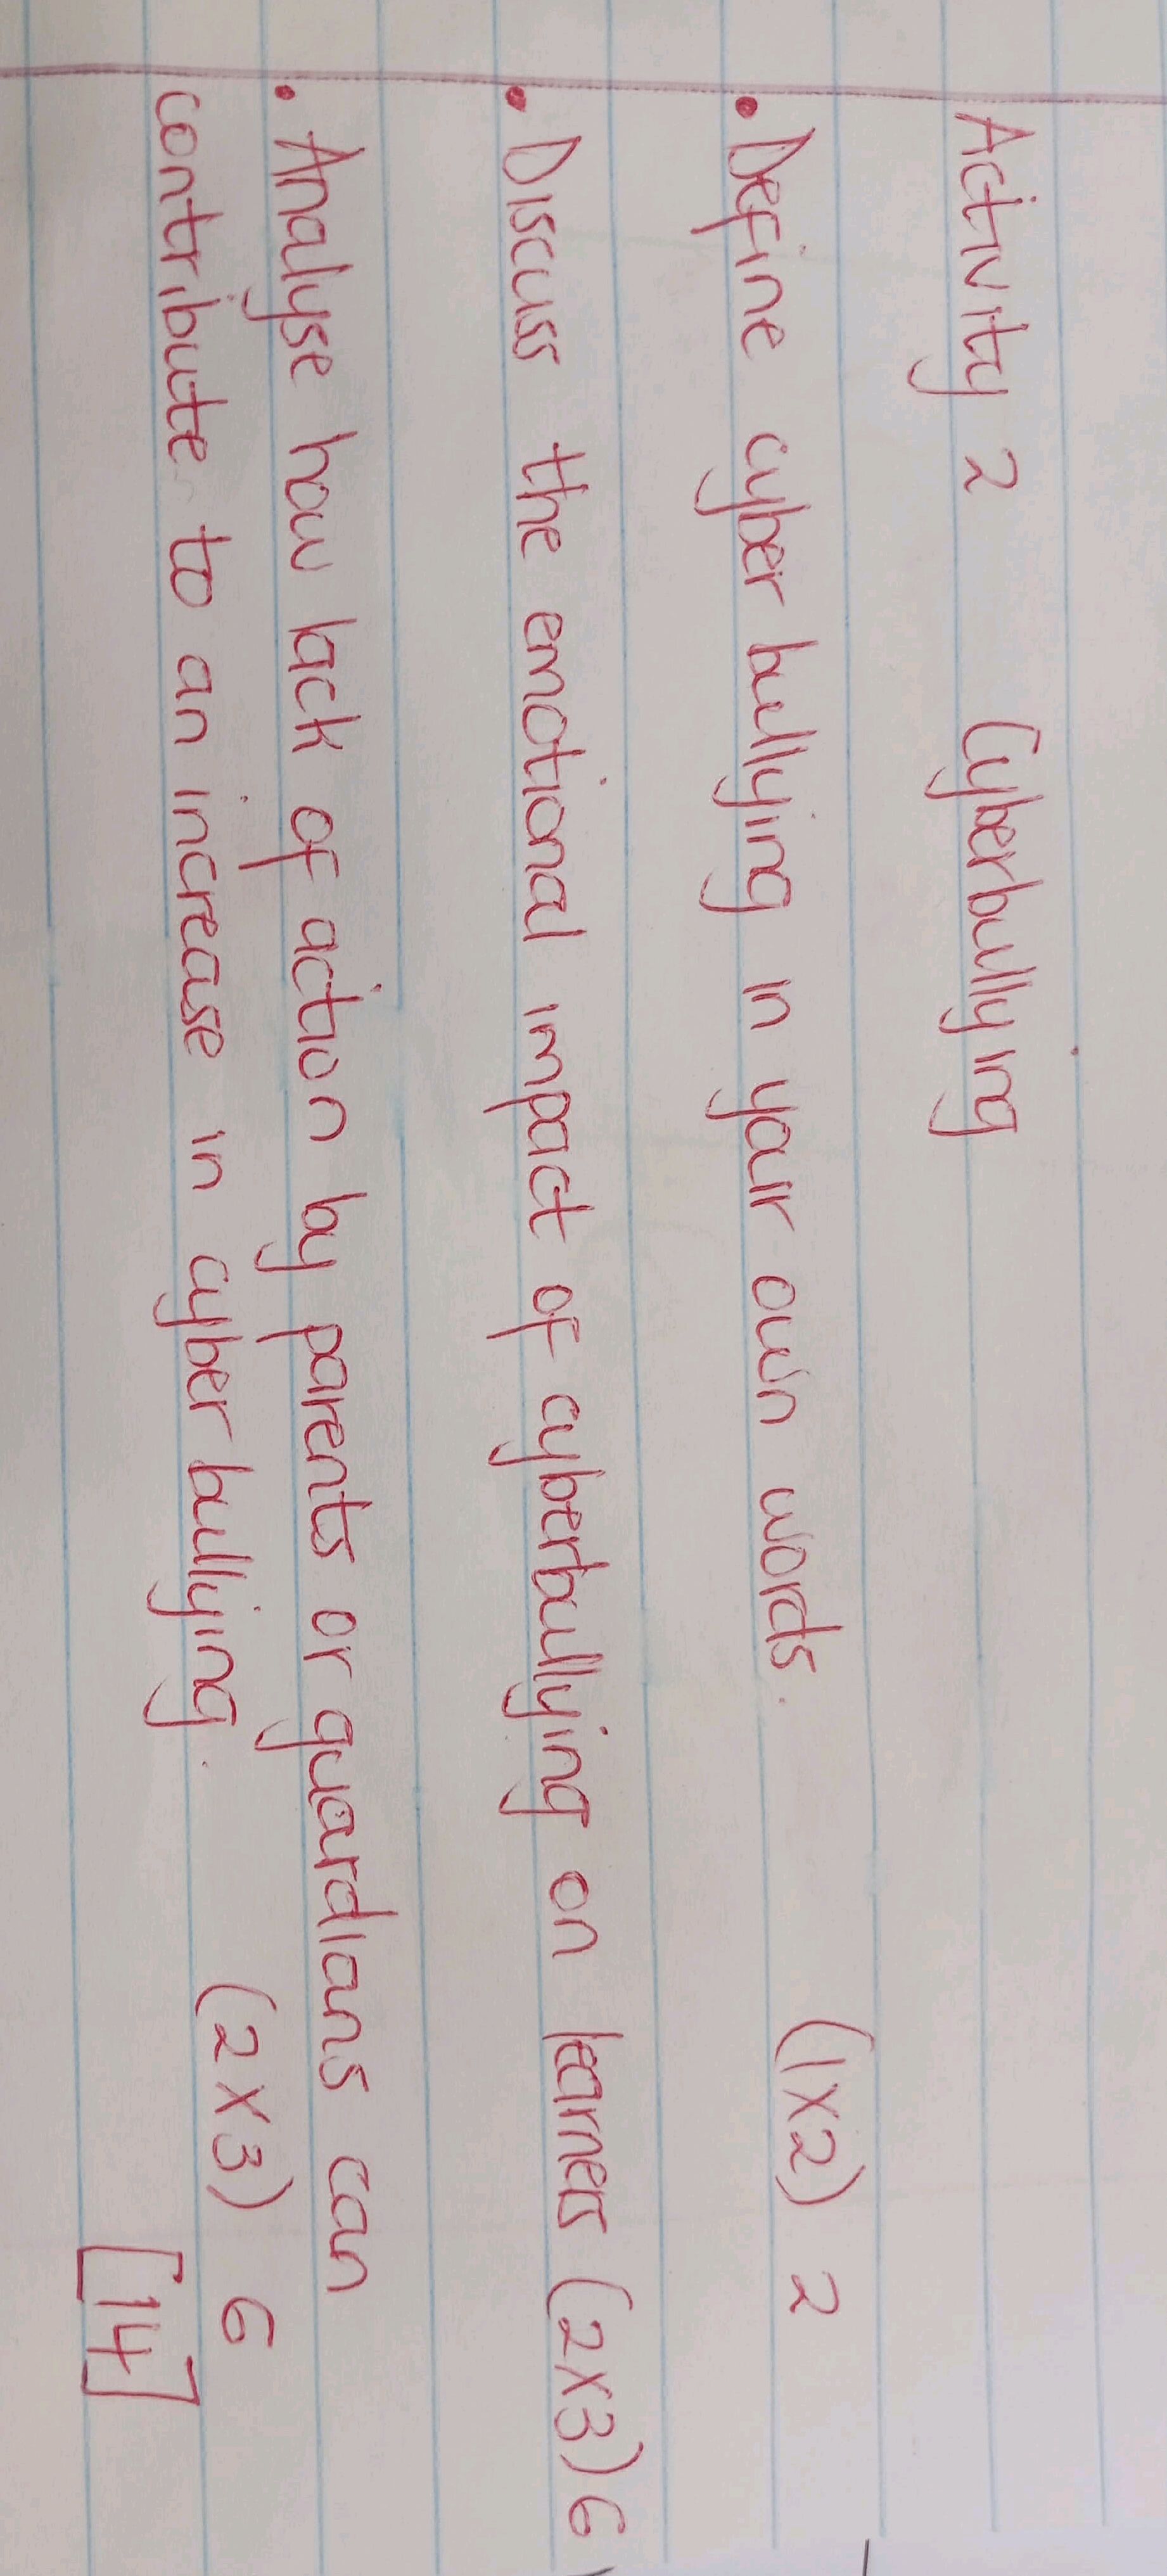 Activity 2 Cyberbullying
• Define cyber bullying in your own words. (1x2) 2
• Discuss the emotional impact of cyberbullying on learners (2x3) 6
• Analyse how lack of action by parents or guardians can
contribute to an increase in cyber bullying. (2x3) 6
[14]